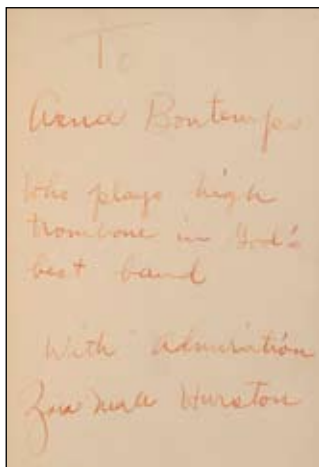 To
Arna Bontemps
Who plays high
trombone in God's
best band
With admiration
Zora Neale Hurston